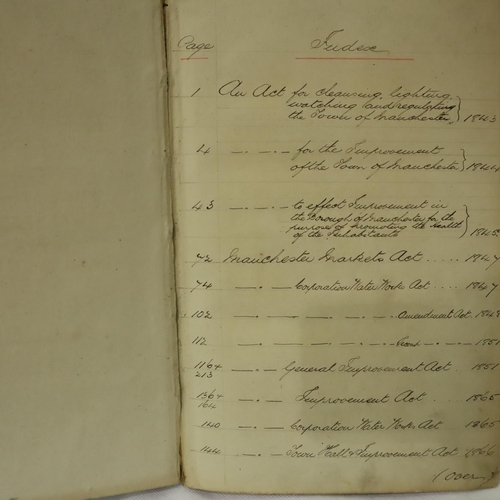 Page Index
1 An Act for cleansing, lighting,
watching and regulating
the Town of Manchester } 1843
4 — . — . — for the Improvement
of the Town of Manchester } 1844
43 — . — . — to effect Improvement in
the Borough of Manchester for the
purpose of promoting the health
of the Inhabitants } 1845
72 Manchester Markets Act .... 1847
74 — . — Corporation Water Works Act ... 1847
102 — . — — — — . Amendment Act. 1848
112 — . — — — — . — . — . — 1851
116 & 213 — . — General Improvement Act . 1851
136 & 164 — . — Improvement Act . 1865
140 — . — Corporation Water Works Act 1865
144 — . — Town Hall & Improvement Act 1866
(over)